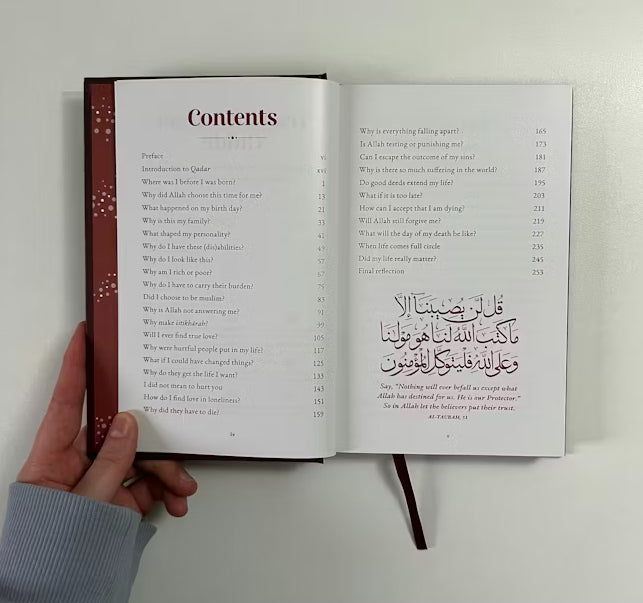 Contents
Preface vi
Introduction to Qadar xvi
Where was I before I was born? 1
Why did Allah choose this time for me? 13
What happened on my birth day? 21
Why is this my family? 33
What shaped my personality? 41
Why do I have these (dis)abilities? 49
Why do I look like this? 57
Why am I rich or poor? 67
Why do I have to carry their burden? 75
Did I choose to be muslim? 83
Why is Allah not answering me? 91
Why make istikhārah? 99
Will I ever find true love? 105
Why were hurtful people put in my life? 117
What if I could have changed things? 125
Why do they get the life I want? 133
I did not mean to hurt you 143
How do I find love in loneliness? 151
Why did they have to die? 159
iv
Why is everything falling apart? 165
Is Allah testing or punishing me? 173
Can I escape the outcome of my sins? 181
Why is there so much suffering in the world? 187
Do good deeds extend my life? 195
What if it is too late? 203
How can I accept that I am dying? 211
Will Allah still forgive me? 219
What will the day of my death be like? 227
When life comes full circle 235
Did my life really matter? 245
Final reflection 253
قُل لَّن يُصِيبَنَآ إِلَّا
مَا كَتَبَ اللَّهُ لَنَا هُوَ مَوْلَىٰنَا
وَعَلَى اللَّهِ فَلْيَتَوَكَّلِ الْمُؤْمِنُونَ
Say, "Nothing will ever befall us except what
Allah has destined for us. He is our Protector."
So in Allah let the believers put their trust.
AL-TAUBAH, 51
v